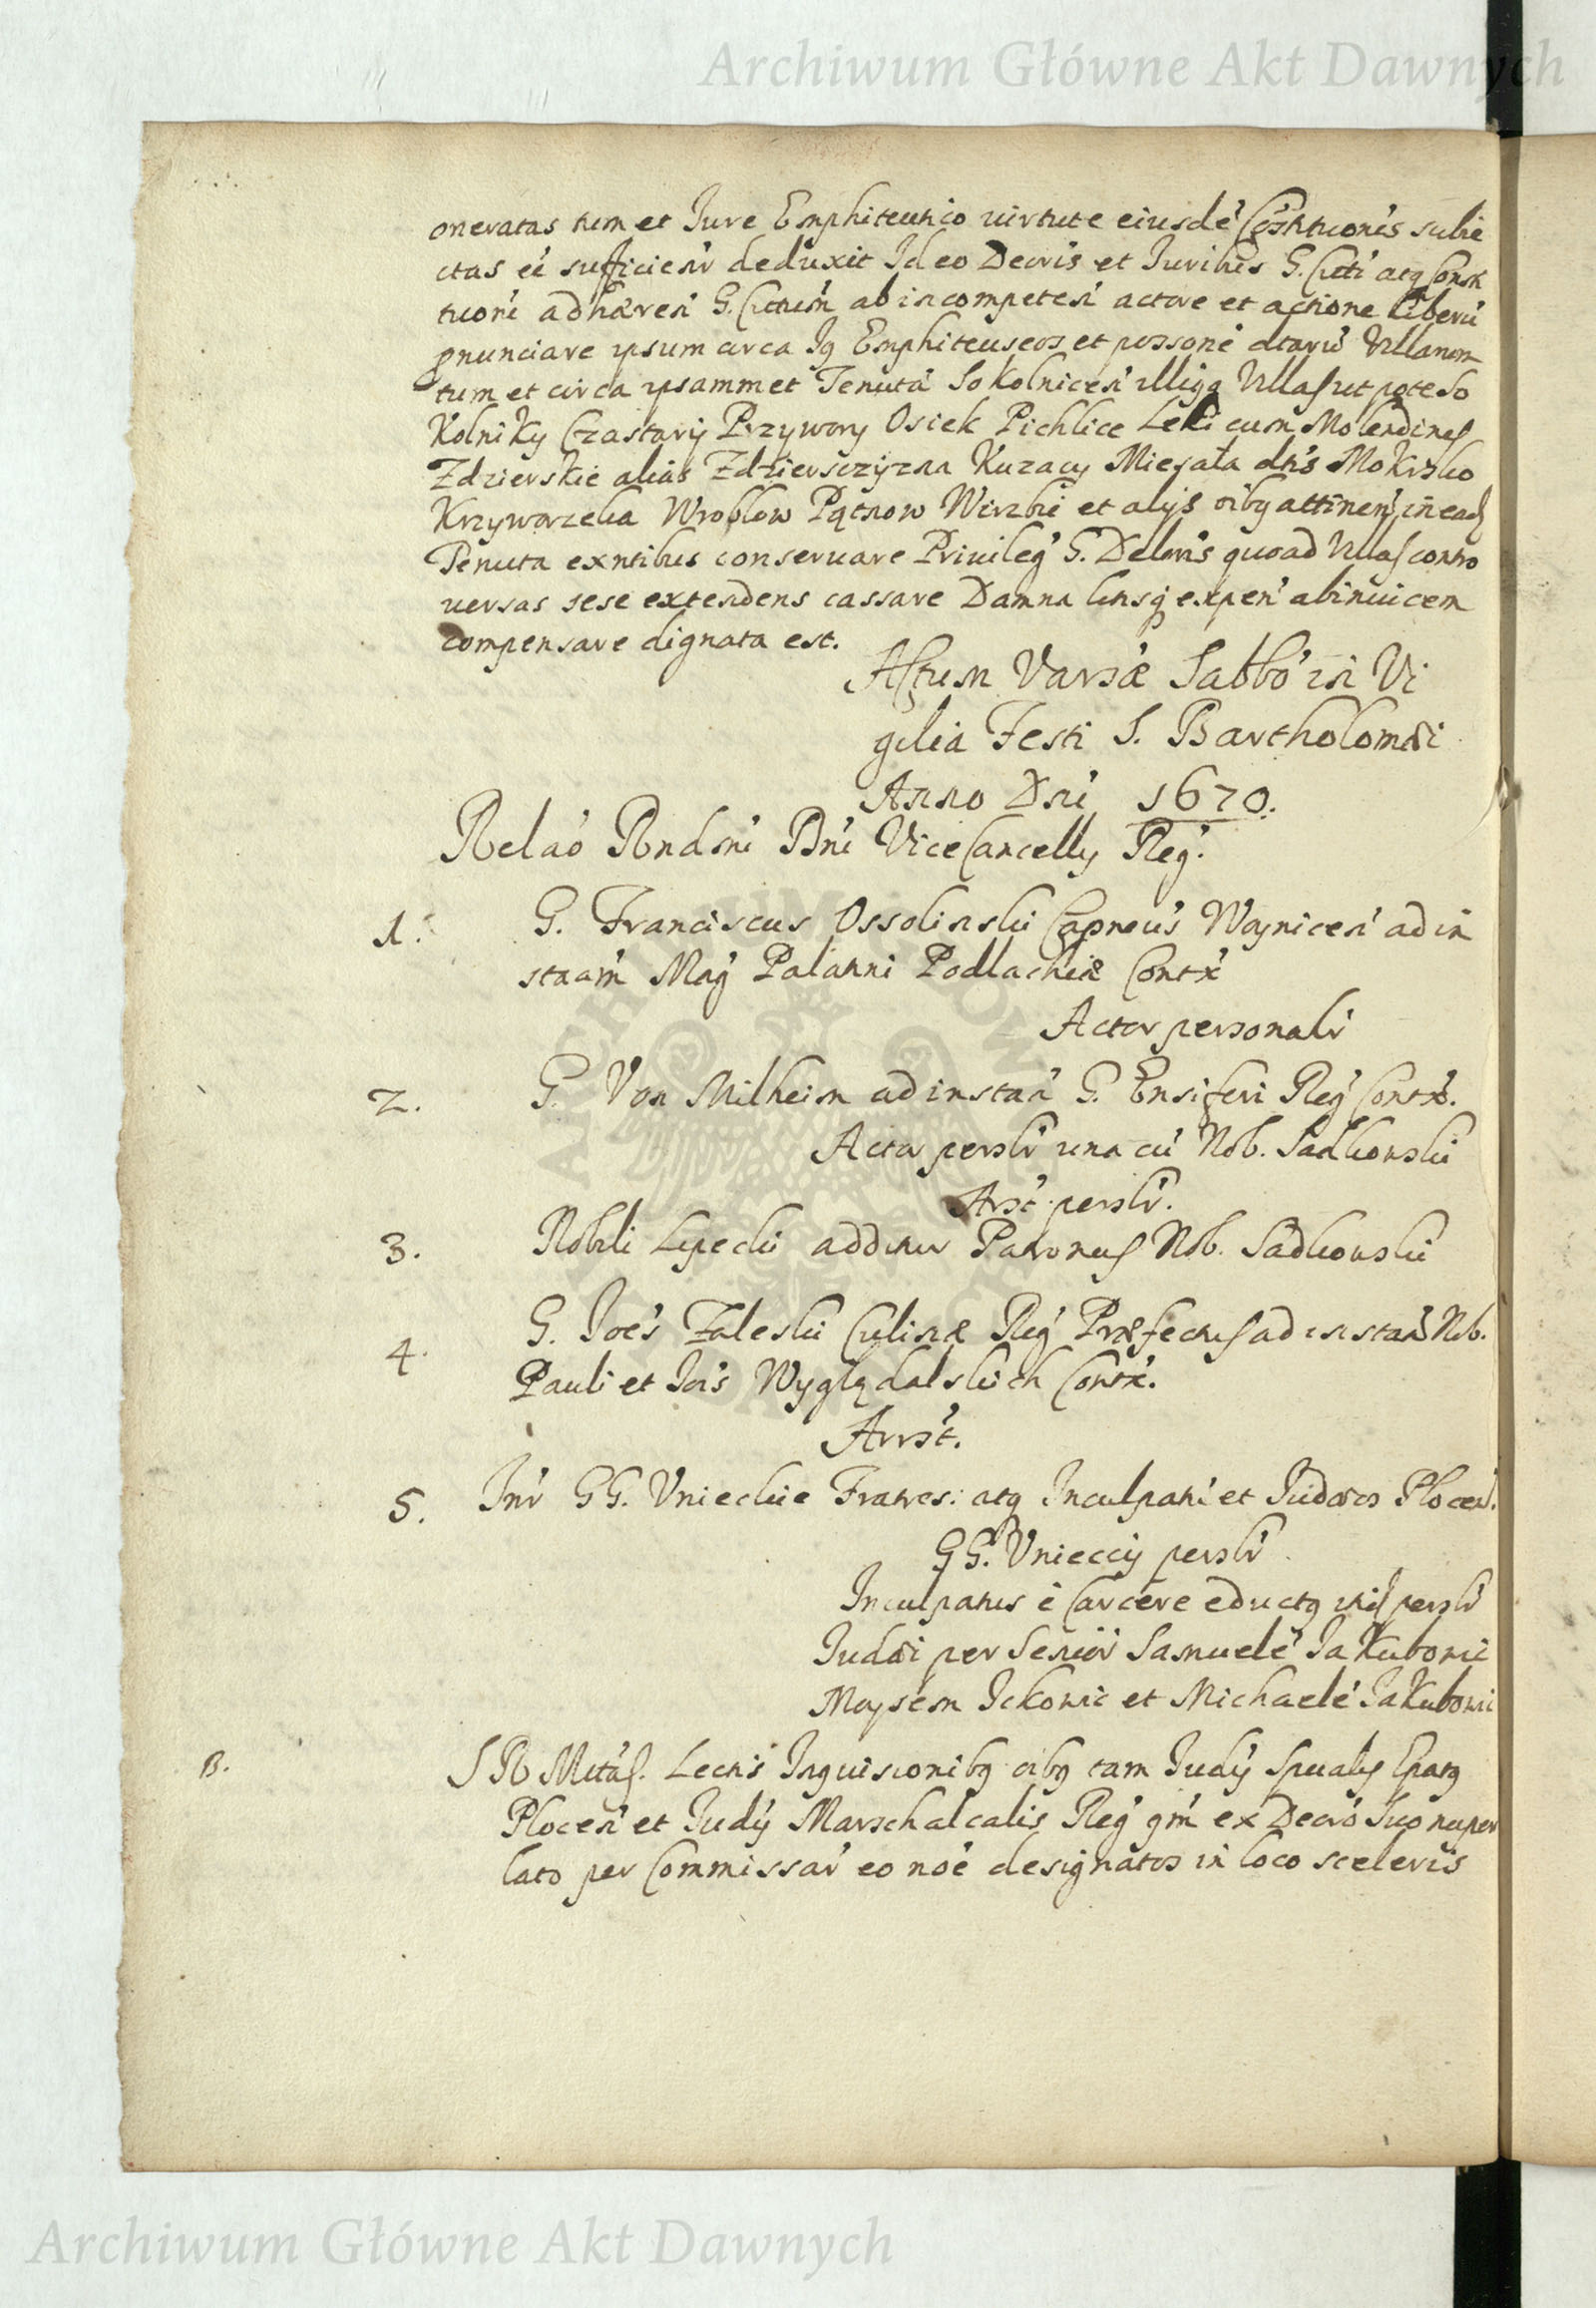 Archiwum Główne Akt Dawnych
oneratas tum et Iure Emphiteutico uirtute eiusdé Cõstituonis subie
ctas eé sufficienr deduxit Ideo Decris et Iuribus G. Citti atq Consti
tuoni adhæren G. Cittum ab incompeten actore et actione liberú
pnunciare ipsum circa Ig Emphiteuseos et possone dtarú Villarum
tum et circa ipsammet Tenutá Sokolnicen illiq Villas ut pote So
Kolniky Czastary Przywory Osiek Pichlice Leki cum Molendines
Zdzierskie alias Zdziersczyzna Kuzacy Miegata dtis Mokrsko
Krzyworzeka Wroblow Pątnow Wirzbie et alijs oibq attinen in ead
Tenuta exntibus conseruare Priuileg G. Deloris quoad Villas contro
uersas sese extendens cassare Damna litisq expen abinuicem
compensare dignata est.
Actum Varsæ Sabbo in Vi
gilia Festi S. Bartholomæi
Anno Dni 1670.
Relaó Rndmi Dni ViceCancelly Reg.
1. G. Franciscus Ossolinski Capneus Woynicen ad in
staam Mag Palatini Podlachiæ Contx
Actor personalr
2. G. Von Milheim ad instan G. Ensiferi Reg Contx.
Actor perslr una cú Nob. Sadkowski
Arst perslr.
3. Nobili Lipecki additur Patronus Nob. Sadkowski
4. G. Joes Zaleski Culinæ Reg Præfectus ad instan Nob.
Pauli et Jois Wyglądalskich Contx.
Arrst.
5. Inr GG. Vnieckie Fratres: atq Inculpati et Iudæos Plocen.
GG. Vnieccy perslr
Inculpatus é Carcere eductq perslr
Iudæi per Senior Samuelé Jakubowic
Moysém Ickowic et Michaelé Jakubowic
B. S R Mttas. Lectis Inquisitionibq oibq tam Iudy Spualis Eparq
Plocen et Iudy Marschalcalis Reg qm ex Decró Suo nuper
lato per Commissar eo noé designatos in loco sceleris
Archiwum Główne Akt Dawnych